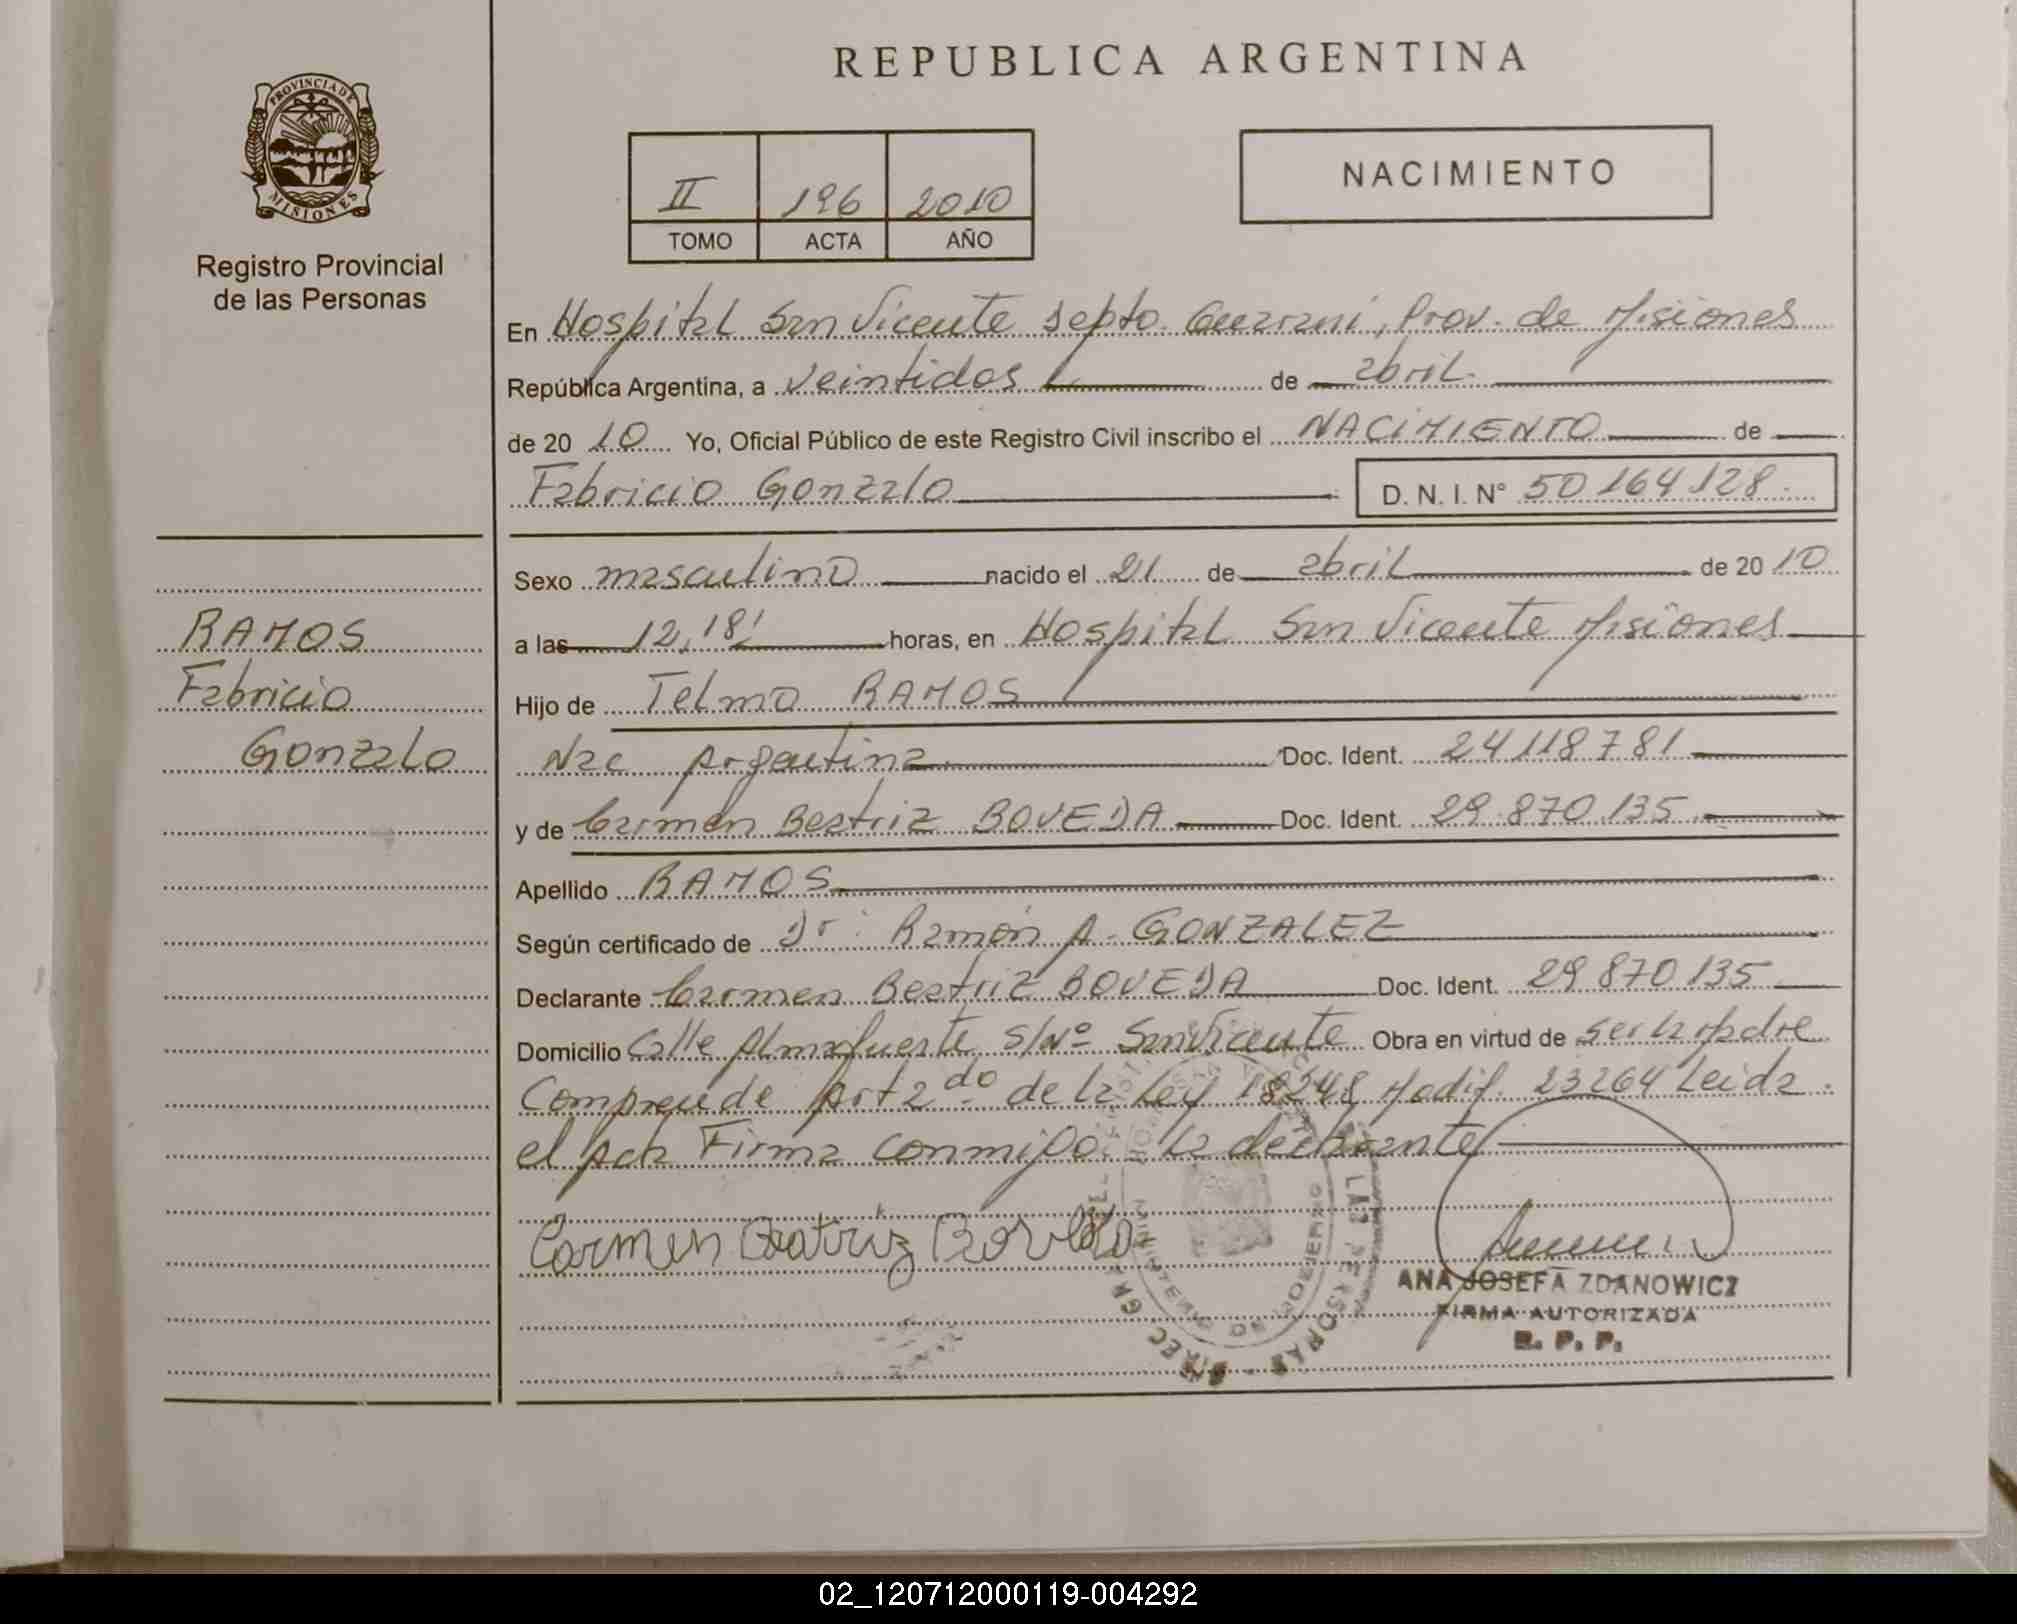 REPUBLICA ARGENTINA
PROVINCIA DE
MISIONES
Registro Provincial
de las Personas
II 196 2010
TOMO ACTA AÑO
NACIMIENTO
En Hospital San Vicente Depto. Guarani, Prov. de Misiones
República Argentina, a veintidos de abril.
de 20 10 Yo, Oficial Público de este Registro Civil inscribo el NACIMIENTO de
Fabricio Gonzalo D. N. I. N° 50 164 128.
Sexo masculino nacido el 21 de abril de 20 10
a las 12,18' horas, en Hospital San Vicente Misiones
Hijo de Telmo RAMOS
Nac Argentina Doc. Ident. 24 118 781
y de Carmen Beatriz BOVEDA Doc. Ident. 29.870.135
Apellido RAMOS
Según certificado de Dr: Ramón A. GONZALEZ
Declarante Carmen Beatriz BOVEDA Doc. Ident. 29 870 135
Domicilio Calle Almafuerte s/Nº San Vicente Obra en virtud de ser la Madre
Comprende Art 2do de la Ley 18248 Modif. 23264 Leida
el Acta Firma conmigo la declarante
RAMOS
Fabricio
Gonzalo
Carmen Beatriz Boveda
MINISTERIO DE GOBIERNO
DIREC GRAL LAS PERSONAS
ANA JOSEFA ZDANOWICZ
FIRMA AUTORIZADA
R. P. P.
02_120712000119-004292